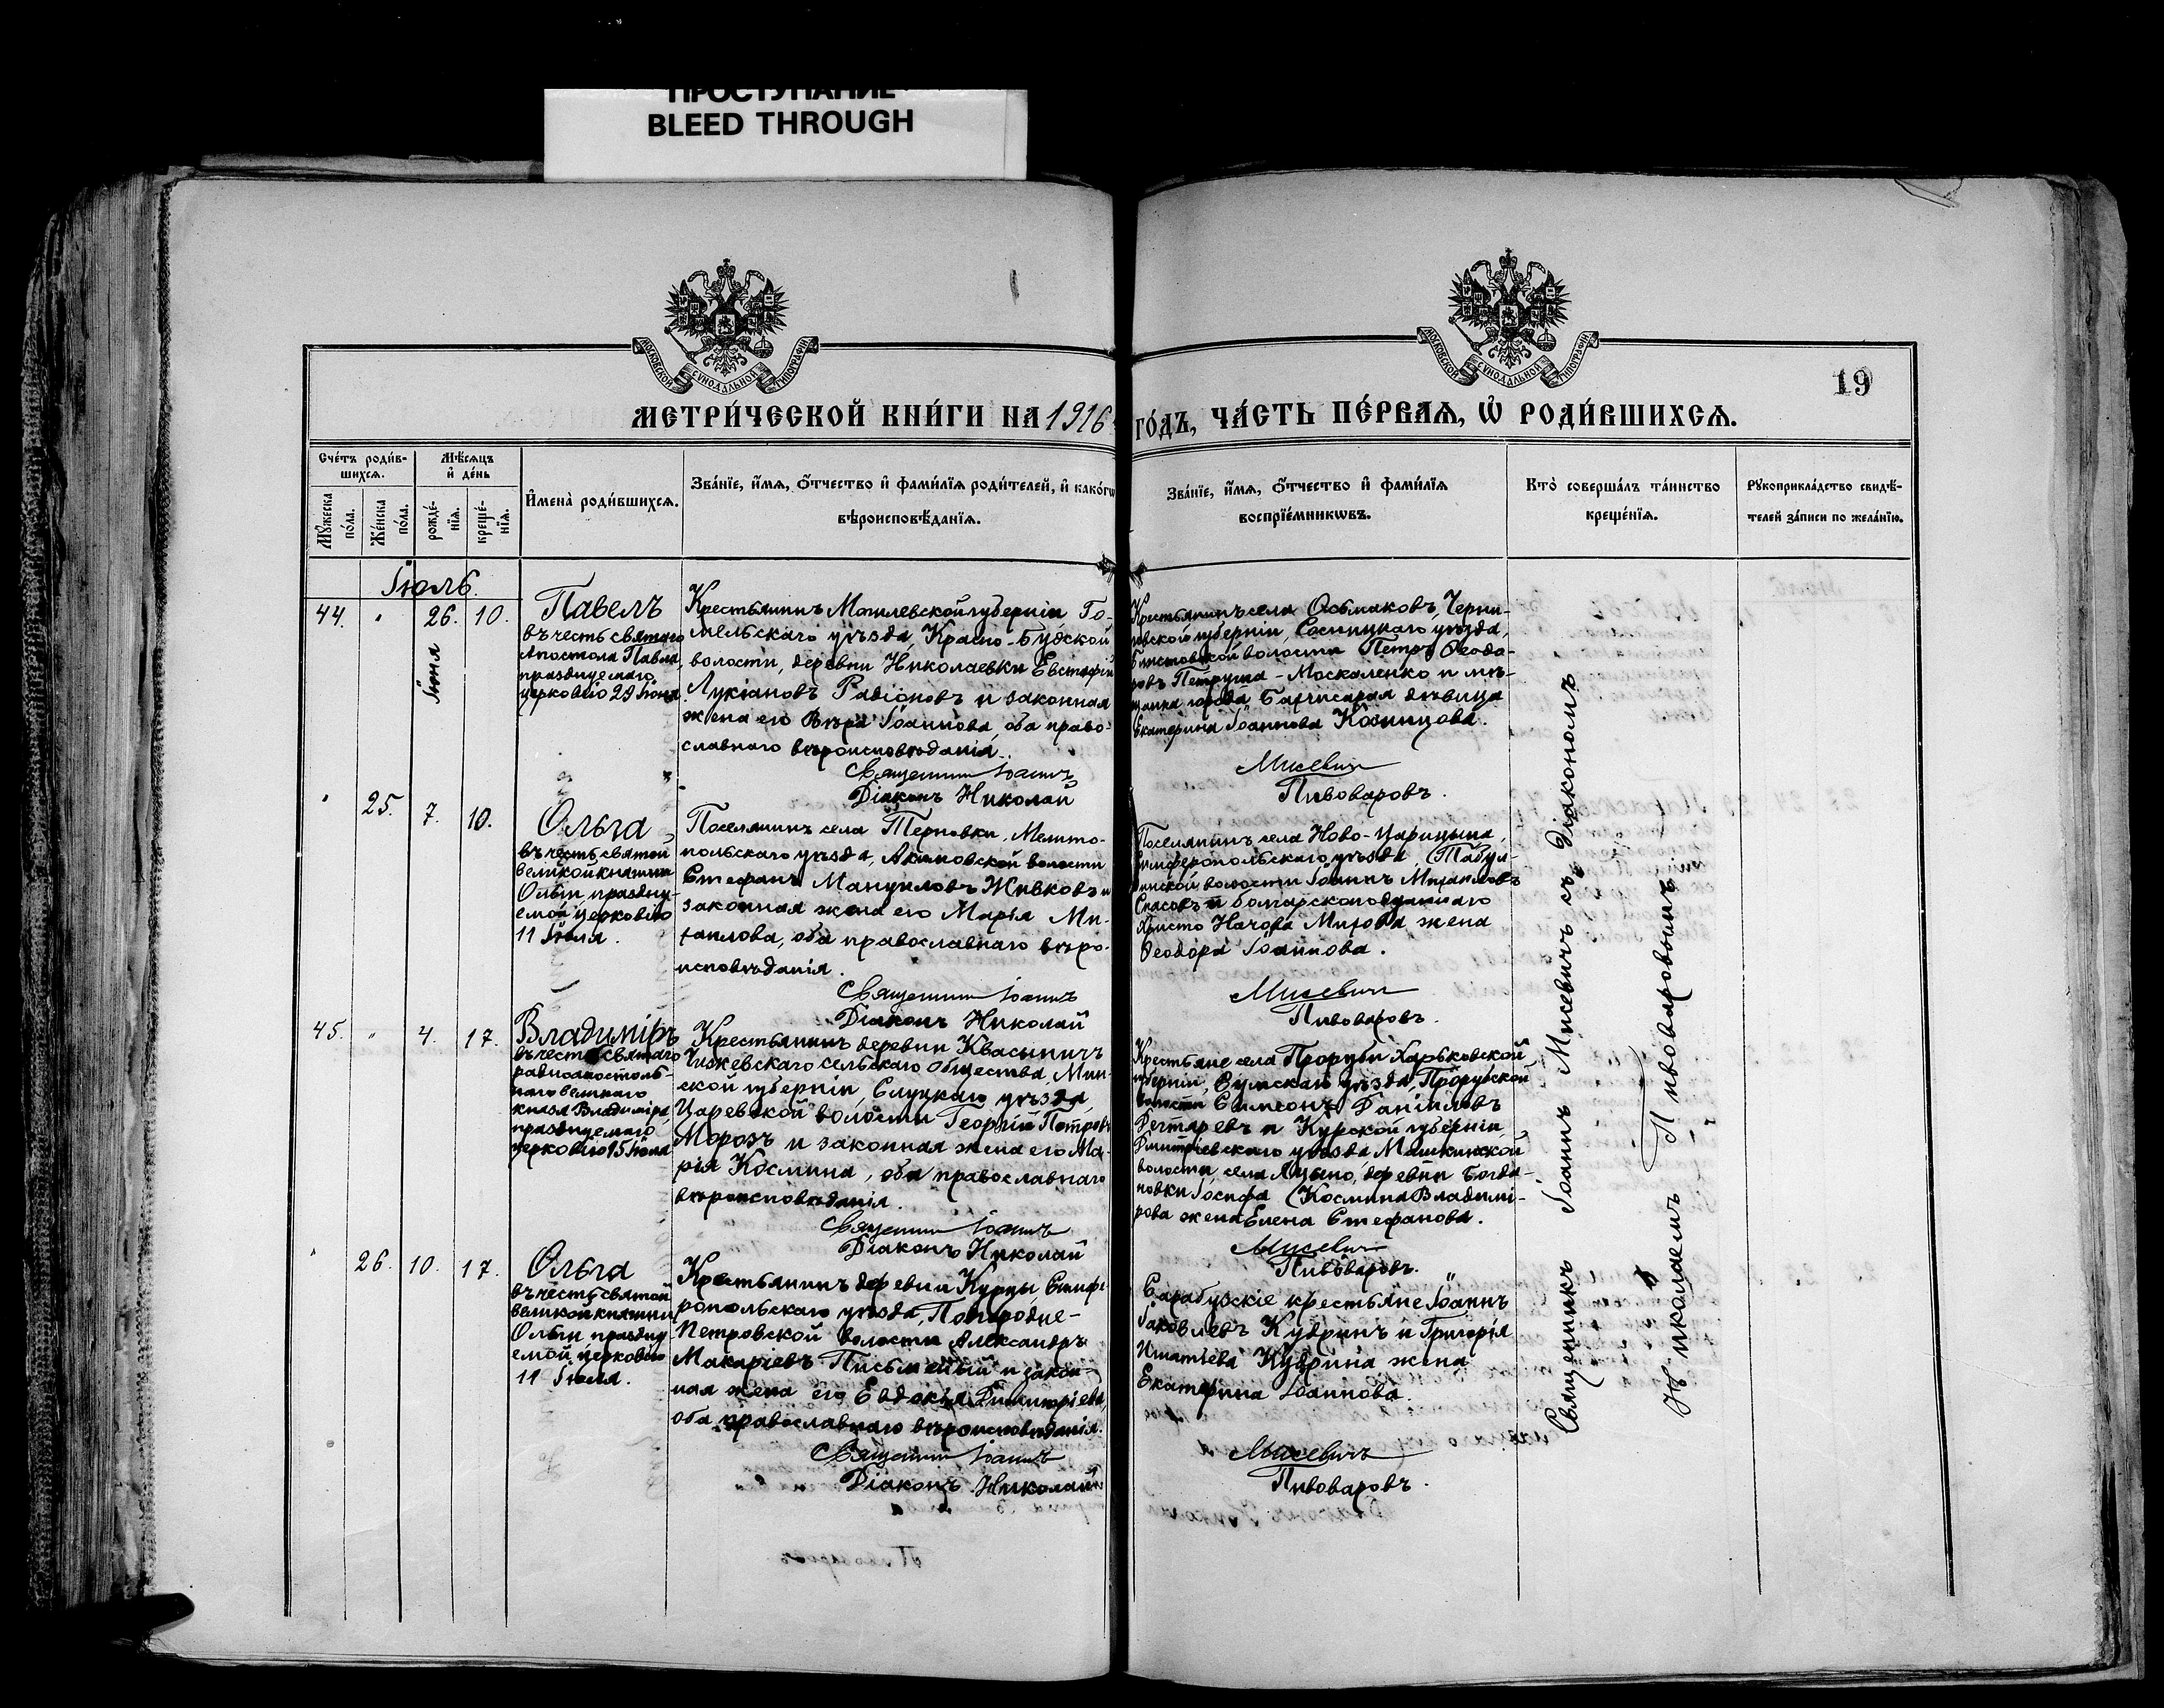 ПРОСТУПАНИЕ
BLEED THROUGH
МОСКОВСКОЙ СУНОДАЛЬНОЙ ТИПОГРАФІИ
МОСКОВСКОЙ СУНОДАЛЬНОЙ ТИПОГРАФІИ
19
МЕТРИ́ЧЕСКОЙ КНИ́ГИ НА 1916
ГО́ДЪ, ЧА́СТЬ ПЕ́РВАѦ, Ѡ҆ РОДИ́ВШИХСѦ.
Сче́тъ роди́в-
шихсѧ.
Мѣ́сѧцъ
и҆ де́нь
Мꙋ́жеска
по́ла.
Же́нска
по́ла.
рожде́-
нїѧ.
креще́-
нїѧ.
И҆мена̀ роди́вшихсѧ.
Зва́нїе, и҆́мѧ, ѻ҆́тчество и҆ фами́лїѧ роди́телей, и҆ како́гѡ
вѣроисповѣ́данїѧ.
Зва́нїе, и҆́мѧ, ѻ҆́тчество и҆ фами́лїѧ
воспрїе́мникѡвъ.
Кто̀ соверша́лъ та́инство
креще́нїѧ.
Рꙋкоприкла́дство свидѣ́-
телей за́писи по жела́нїю.
Іюль.
44. " 26. 10.
Іюня
Павелъ
въ честь святаго
Апостола Павла,
празднуемаго
церковію 29 Іюня
Крестьянинъ Могилевской губерніи, Го-
мельскаго уѣзда, Красно-Будской
волости, деревни Николаевки Евстафій
Лукіановъ Радіоновъ и законная
жена его Вѣра Іоаннова, оба право-
славнаго вѣроисповѣданія.
Священникъ Іоаннъ
Діаконъ Николай
Крестьянинъ села Осьмаковъ, Черни-
говской губерніи, Сосницкаго уѣзда,
волости Петръ Ѳеодо-
ровъ Петруша-Москаленко и мѣ-
щанка города Бахчисарая дѣвица
Екатерина Іоаннова Казинцова.
Мисевичъ
Пивоваровъ.
" 25. 7. 10.
Ольга
въ честь святой
великой княгини
Ольги, праздну-
емой церковію
11 Іюля.
Поселянинъ села Терновки, Мелито-
польскаго уѣзда, Акимовской волости
Стефанъ Мануиловъ Живковъ и
законная жена его Марія Ми-
хаилова, оба православнаго вѣро-
исповѣданія.
Священникъ Іоаннъ
Діаконъ Николай
Поселянинъ села Ново-Царицына,
Симферопольскаго уѣзда, Табул-
динской волости Іоаннъ Михаиловъ
Спасовъ и болгарскоподданнаго
Христо Начова Мирова жена
Ѳеодора Іоаннова.
Мисевичъ
Пивоваровъ.
45. " 4. 17.
Владиміръ
въ честь святаго
равноапостоль-
наго великаго
князя Владиміра,
празднуемаго
церковію 15 Іюля
Крестьянинъ деревни Квасыничъ
Чижевскаго сельскаго общества, Мин-
ской губерніи, Слуцкаго уѣзда,
Царевской волости Георгій Петровъ
Морозъ и законная жена его Ма-
рія Космина, оба православнаго
вѣроисповѣданія.
Священникъ Іоаннъ
Діаконъ Николай
Крестьяне села Проруби Харьковской
губерніи, Сумскаго уѣзда, Прорубской
волости Симеонъ Даніиловъ
Дегтяревъ и Курской губерніи
Дмитріевскаго уѣзда, Машкинской
волости, села деревни Богда-
новки Іосифа Космина Владимі-
рова жена Елена Стефанова.
Мисевичъ
Пивоваровъ.
" 26. 10. 17.
Ольга
въ честь святой
великой княгини
Ольги, праздну-
емой церковію
11 Іюля.
Крестьянинъ деревни Курцы Симфе-
ропольскаго уѣзда, Подгородне-
Петровской волости Александръ
Макаріевъ Письменый и закон-
ная жена его Евдокія Димитріева,
оба православнаго вѣроисповѣданія.
Священникъ Іоаннъ
Діаконъ Николай
Сарабузскіе крестьяне Іоаннъ
Іаковлевъ Кудринъ и Григорія
Игнатьева Кудрина жена
Екатерина Іоаннова.
Мисевичъ
Пивоваровъ.
Священникъ Іоаннъ Мисевичъ съ діакономъ
Николаемъ Пивоваровымъ